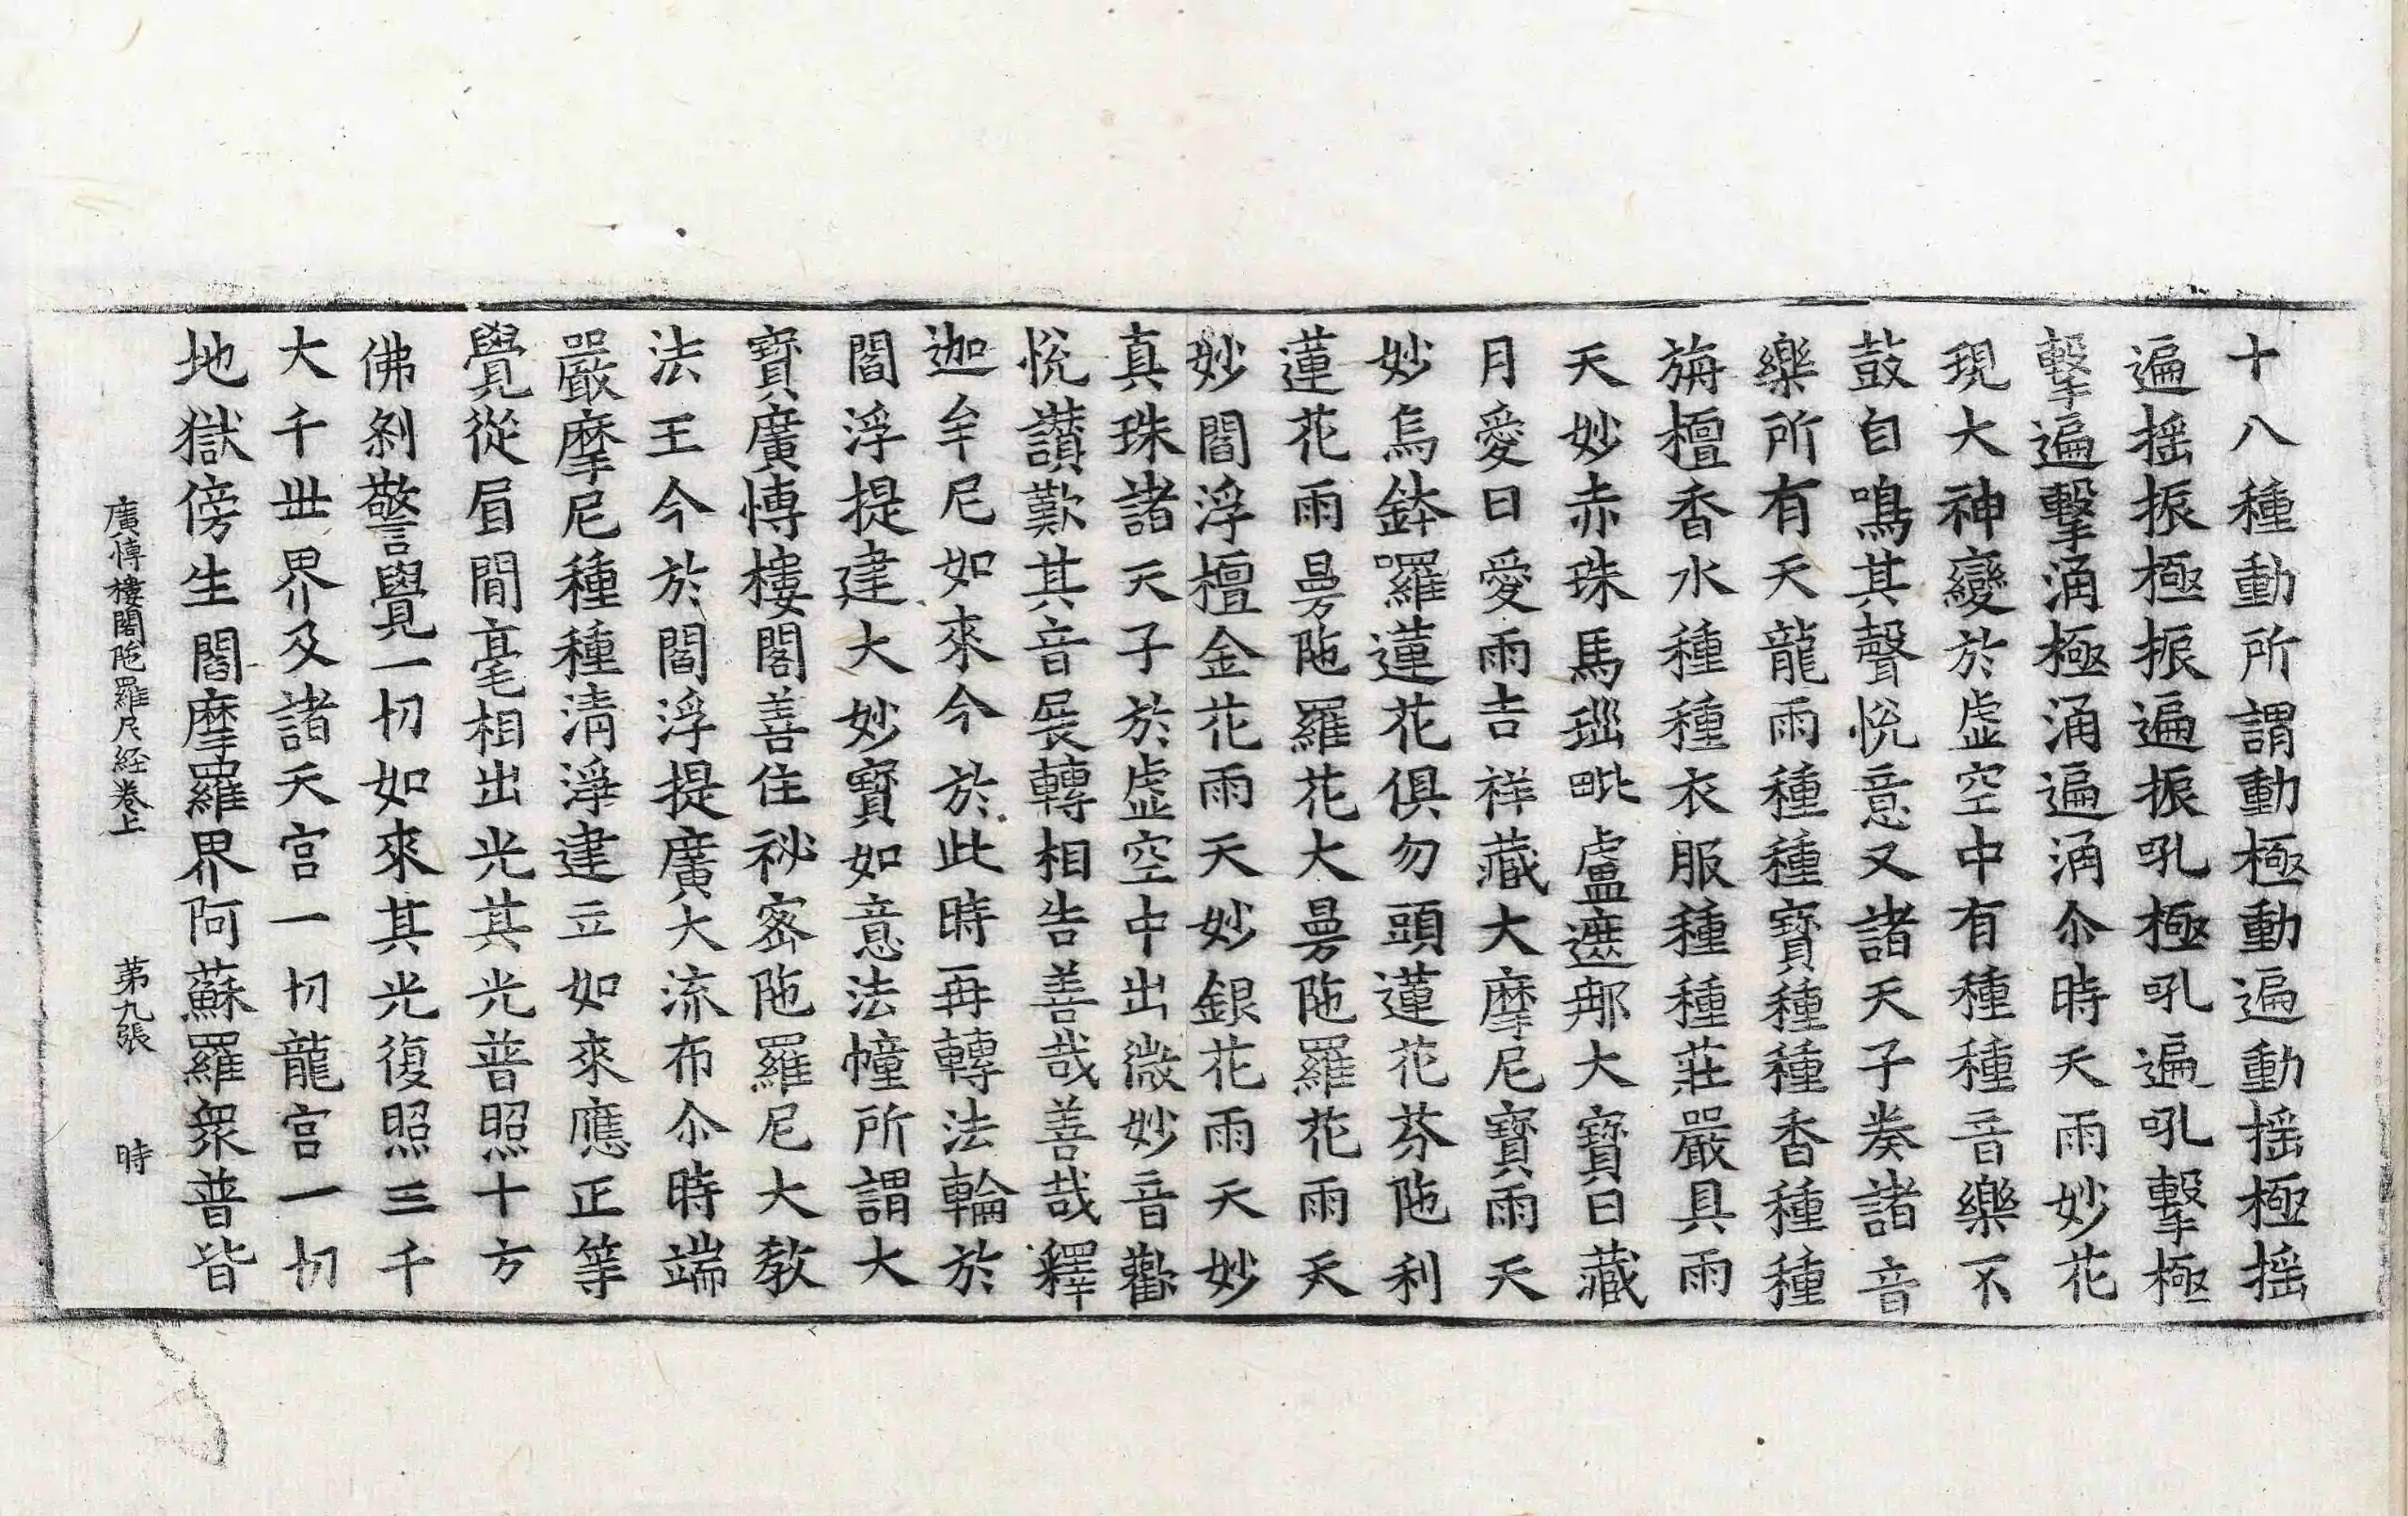 十八種動所謂動極動遍動摇極摇
遍摇振極振遍振吼極吼遍吼擊極
擊遍擊涌極涌遍涌尒時天雨妙花
現大神變於虛空中有種種音樂不
鼓自鳴其聲悅意又諸天子奏諸音
樂所有天龍雨種種寶種種香種種
旃檀香水種種衣服種種莊嚴具雨
天妙赤珠馬瑙毗盧遮𨚗大寶日藏
月愛日愛雨吉祥藏大摩尼寶雨天
妙烏鉢囉蓮花俱勿頭蓮花芬陁利
蓮花雨曼陁羅花大曼陁羅花雨天
妙閻浮檀金花雨天妙銀花雨天妙
真珠諸天子於虛空中出微妙音歡
悅讚歎其音展轉相告善哉善哉釋
迦牟尼如來今於此時再轉法輪於
閻浮提建大妙寶如意法幢所謂大
寶廣愽樓閣善住祕密陁羅尼大教
法王今於閻浮提廣大流布尒時端
嚴摩尼種種清淨建立如來應正等
覺從眉閒毫相出光其光普照十方
佛刹警覺一切如來其光復照三千
大千世界及諸天宮一切龍宮一切
地獄傍生閻摩羅界阿蘇羅衆普皆
廣愽樓閣陁羅尼経卷上 第九張 時